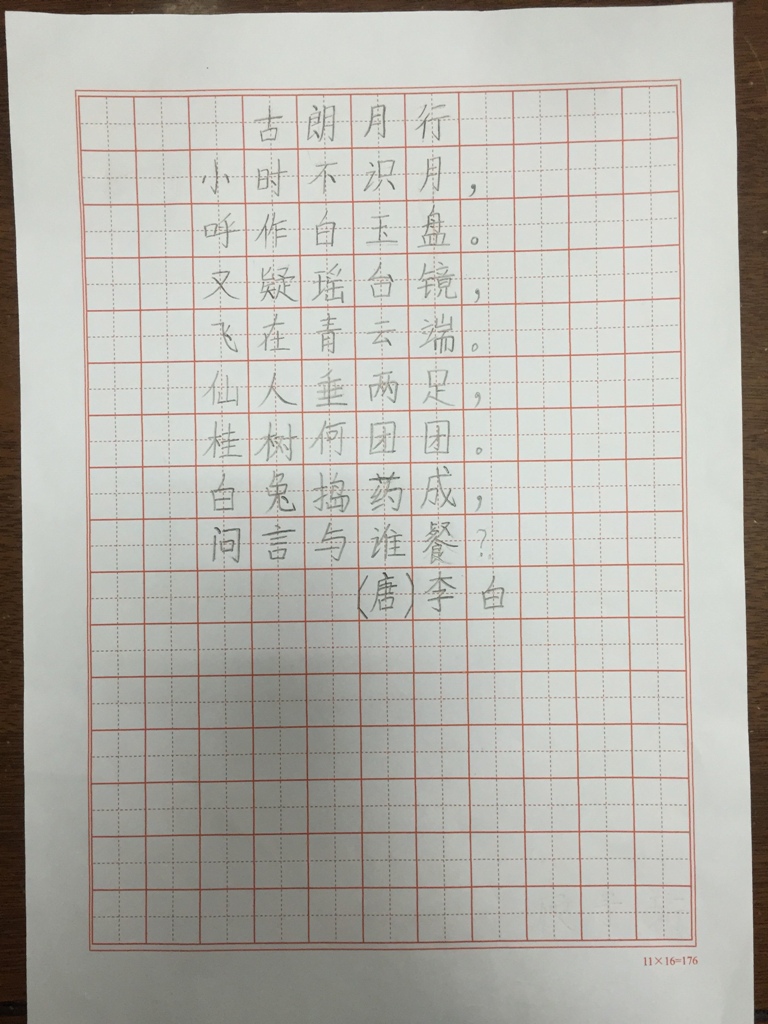 古朗月行
小时不识月，
呼作白玉盘。
又疑瑶台镜，
飞在青云端。
仙人垂两足，
桂树何团团。
白兔捣药成，
问言与谁餐？
(唐)李白
11×16=176